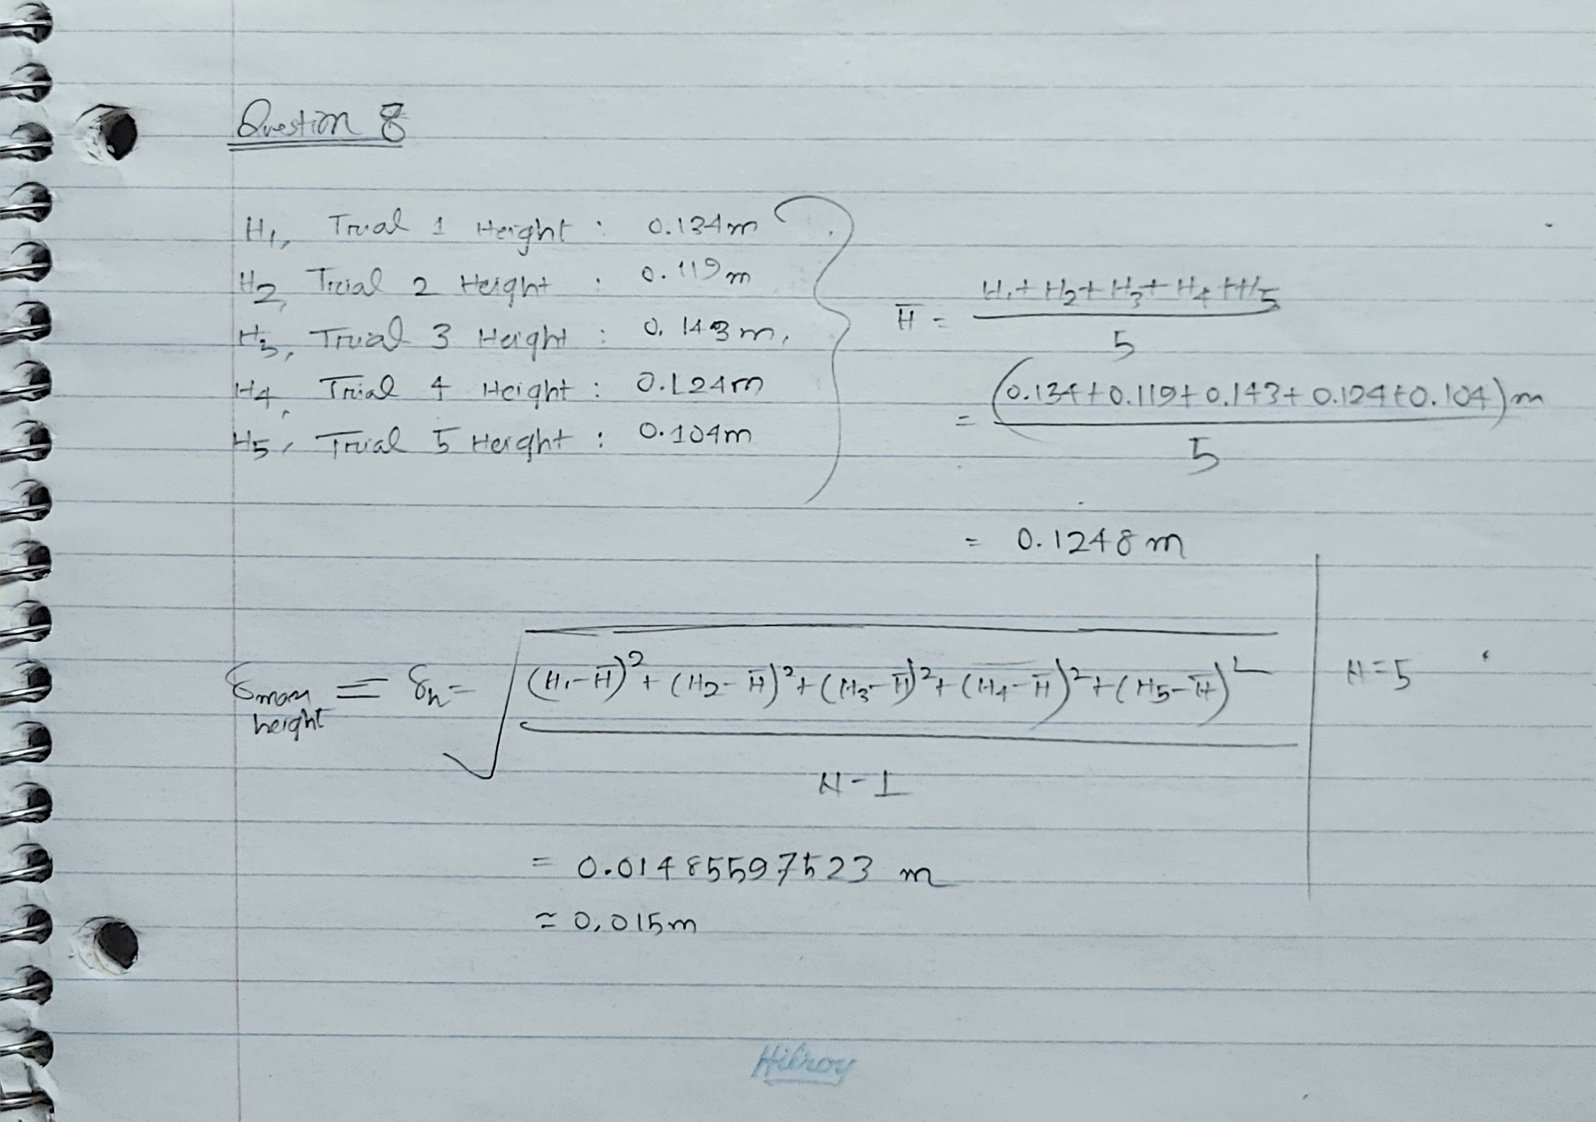 Question 8
H1, Trial 1 Height : 0.134m
H2, Trial 2 Height : 0.119m
H3, Trial 3 Height : 0.143m,
H4, Trial 4 Height : 0.124m
H5, Trial 5 Height : 0.104m
H̄ = (H1+H2+H3+H4+H5)/5
= (0.134+0.119+0.143+0.124+0.104)m/5
= 0.1248m
δmax height = δh = √(((H1-H̄)²+(H2-H̄)²+(H3-H̄)²+(H4-H̄)²+(H5-H̄)²)/(N-1))
N=5
= 0.01485597523 m
≈ 0.015m
Hilroy